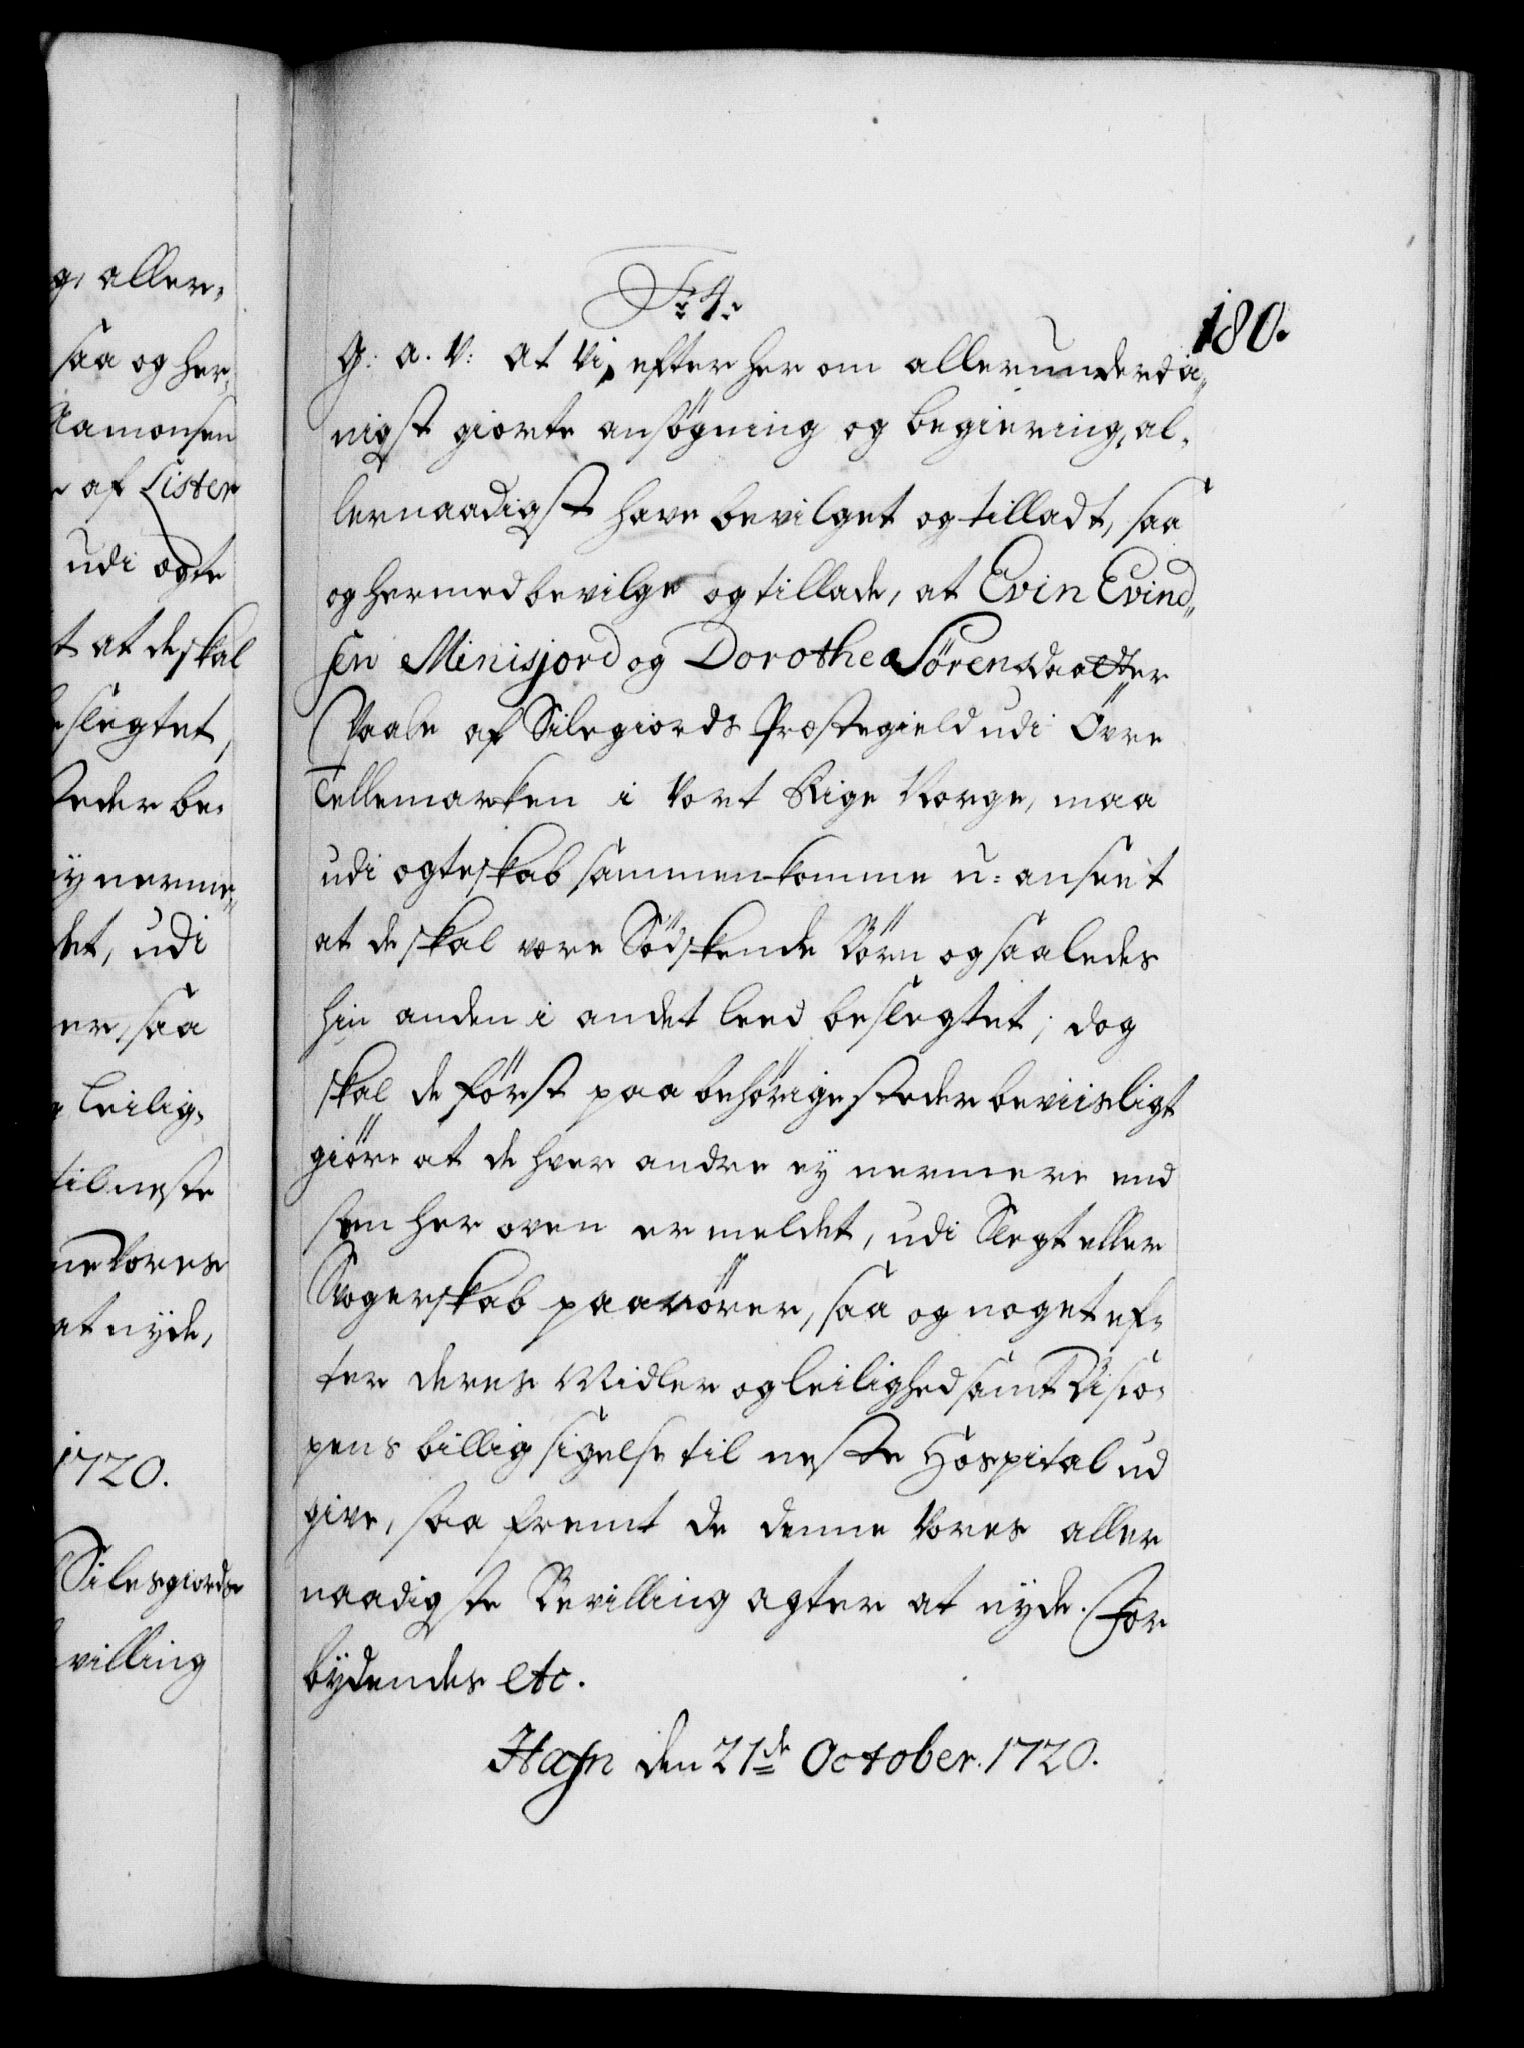 g, aller-
saa og her-
Aamonsen
af Lister
udi ægte
t at de skal
beslegtet,
steder be-
ey nerme-
det, udi
er, saa
g leilig-
til neste
ne Vores
at nyde,
1720.
Silesgiords
villing
F: 4.
180.
G: a. V: at Vi, efter her om allerunderdā-
nigst giorte ansøgning og begiering, al-
lernaadigst have bevilget og tilladt, saa
og hermed bevilge og tillade, at Evin Evind-
sen Minisjord og Dorothea Sørensdaatter
Vaale af Silegiords Præstegield udi Øvre
Tellemarken i Vort Rige Norge, maa
udi ægteskab sammenkomme u-anseet
at de skal være Sødskende Børn og saaledes
hin anden i andet leed beslegtet; dog
skal de først paa behørige steder beviisligt
giøre at de hver andre ey nermere end
som her oven er meldet, udi Slegt eller
Svogerskab paarører, saa og noget ef-
ter deres Midler og leilighed samt Bisco-
pens billig sigelse til neste Hospital ud
give, saa fremt de denne Vores aller
naadigste Bevilling agter at nyde. For
bydendes etc.
Hafn den 21de October. 1720.